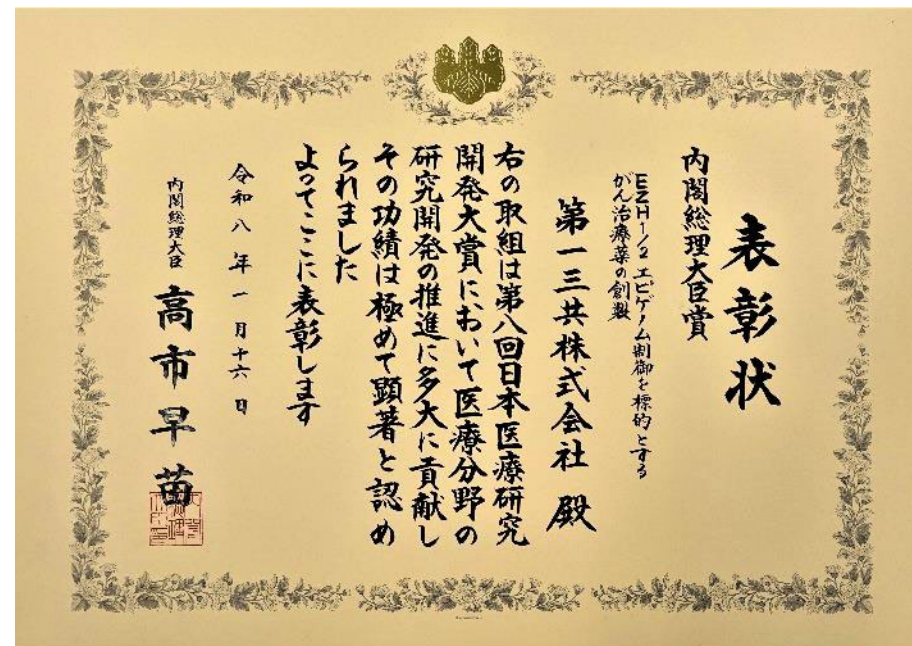 表彰状
内閣総理大臣賞
EZH1/2エピゲノム制御を標的とする
がん治療薬の創製
第一三共株式会社 殿
右の取組は第八回日本医療研究
開発大賞において医療分野の
研究開発の推進に多大に貢献し
その功績は極めて顕著と認め
られました
よってここに表彰します
令和八年一月十六日
内閣総理大臣 高市早苗